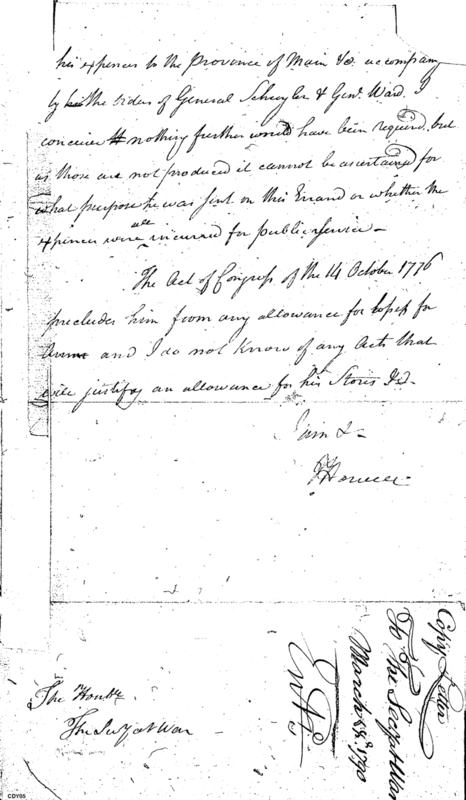 his expences to the Province of Main &c. accompany
by the orders of General Schuyler & Genl. Ward. I
conceive nothing further would have been required. but
as those are not produced it cannot be ascertained for
what purpose he was sent on this Errand or whether the
expences were all incurred for public service –
The Act of Congress of the 14 October 1776
precludes him from any allowance for losses for
and I do not Know of any Acts that
will justify an allowance for his Stores &c –
I am &–
The Honble
The Secy at War
Copy Letter
To The Secy at War
March 1790
CDY05